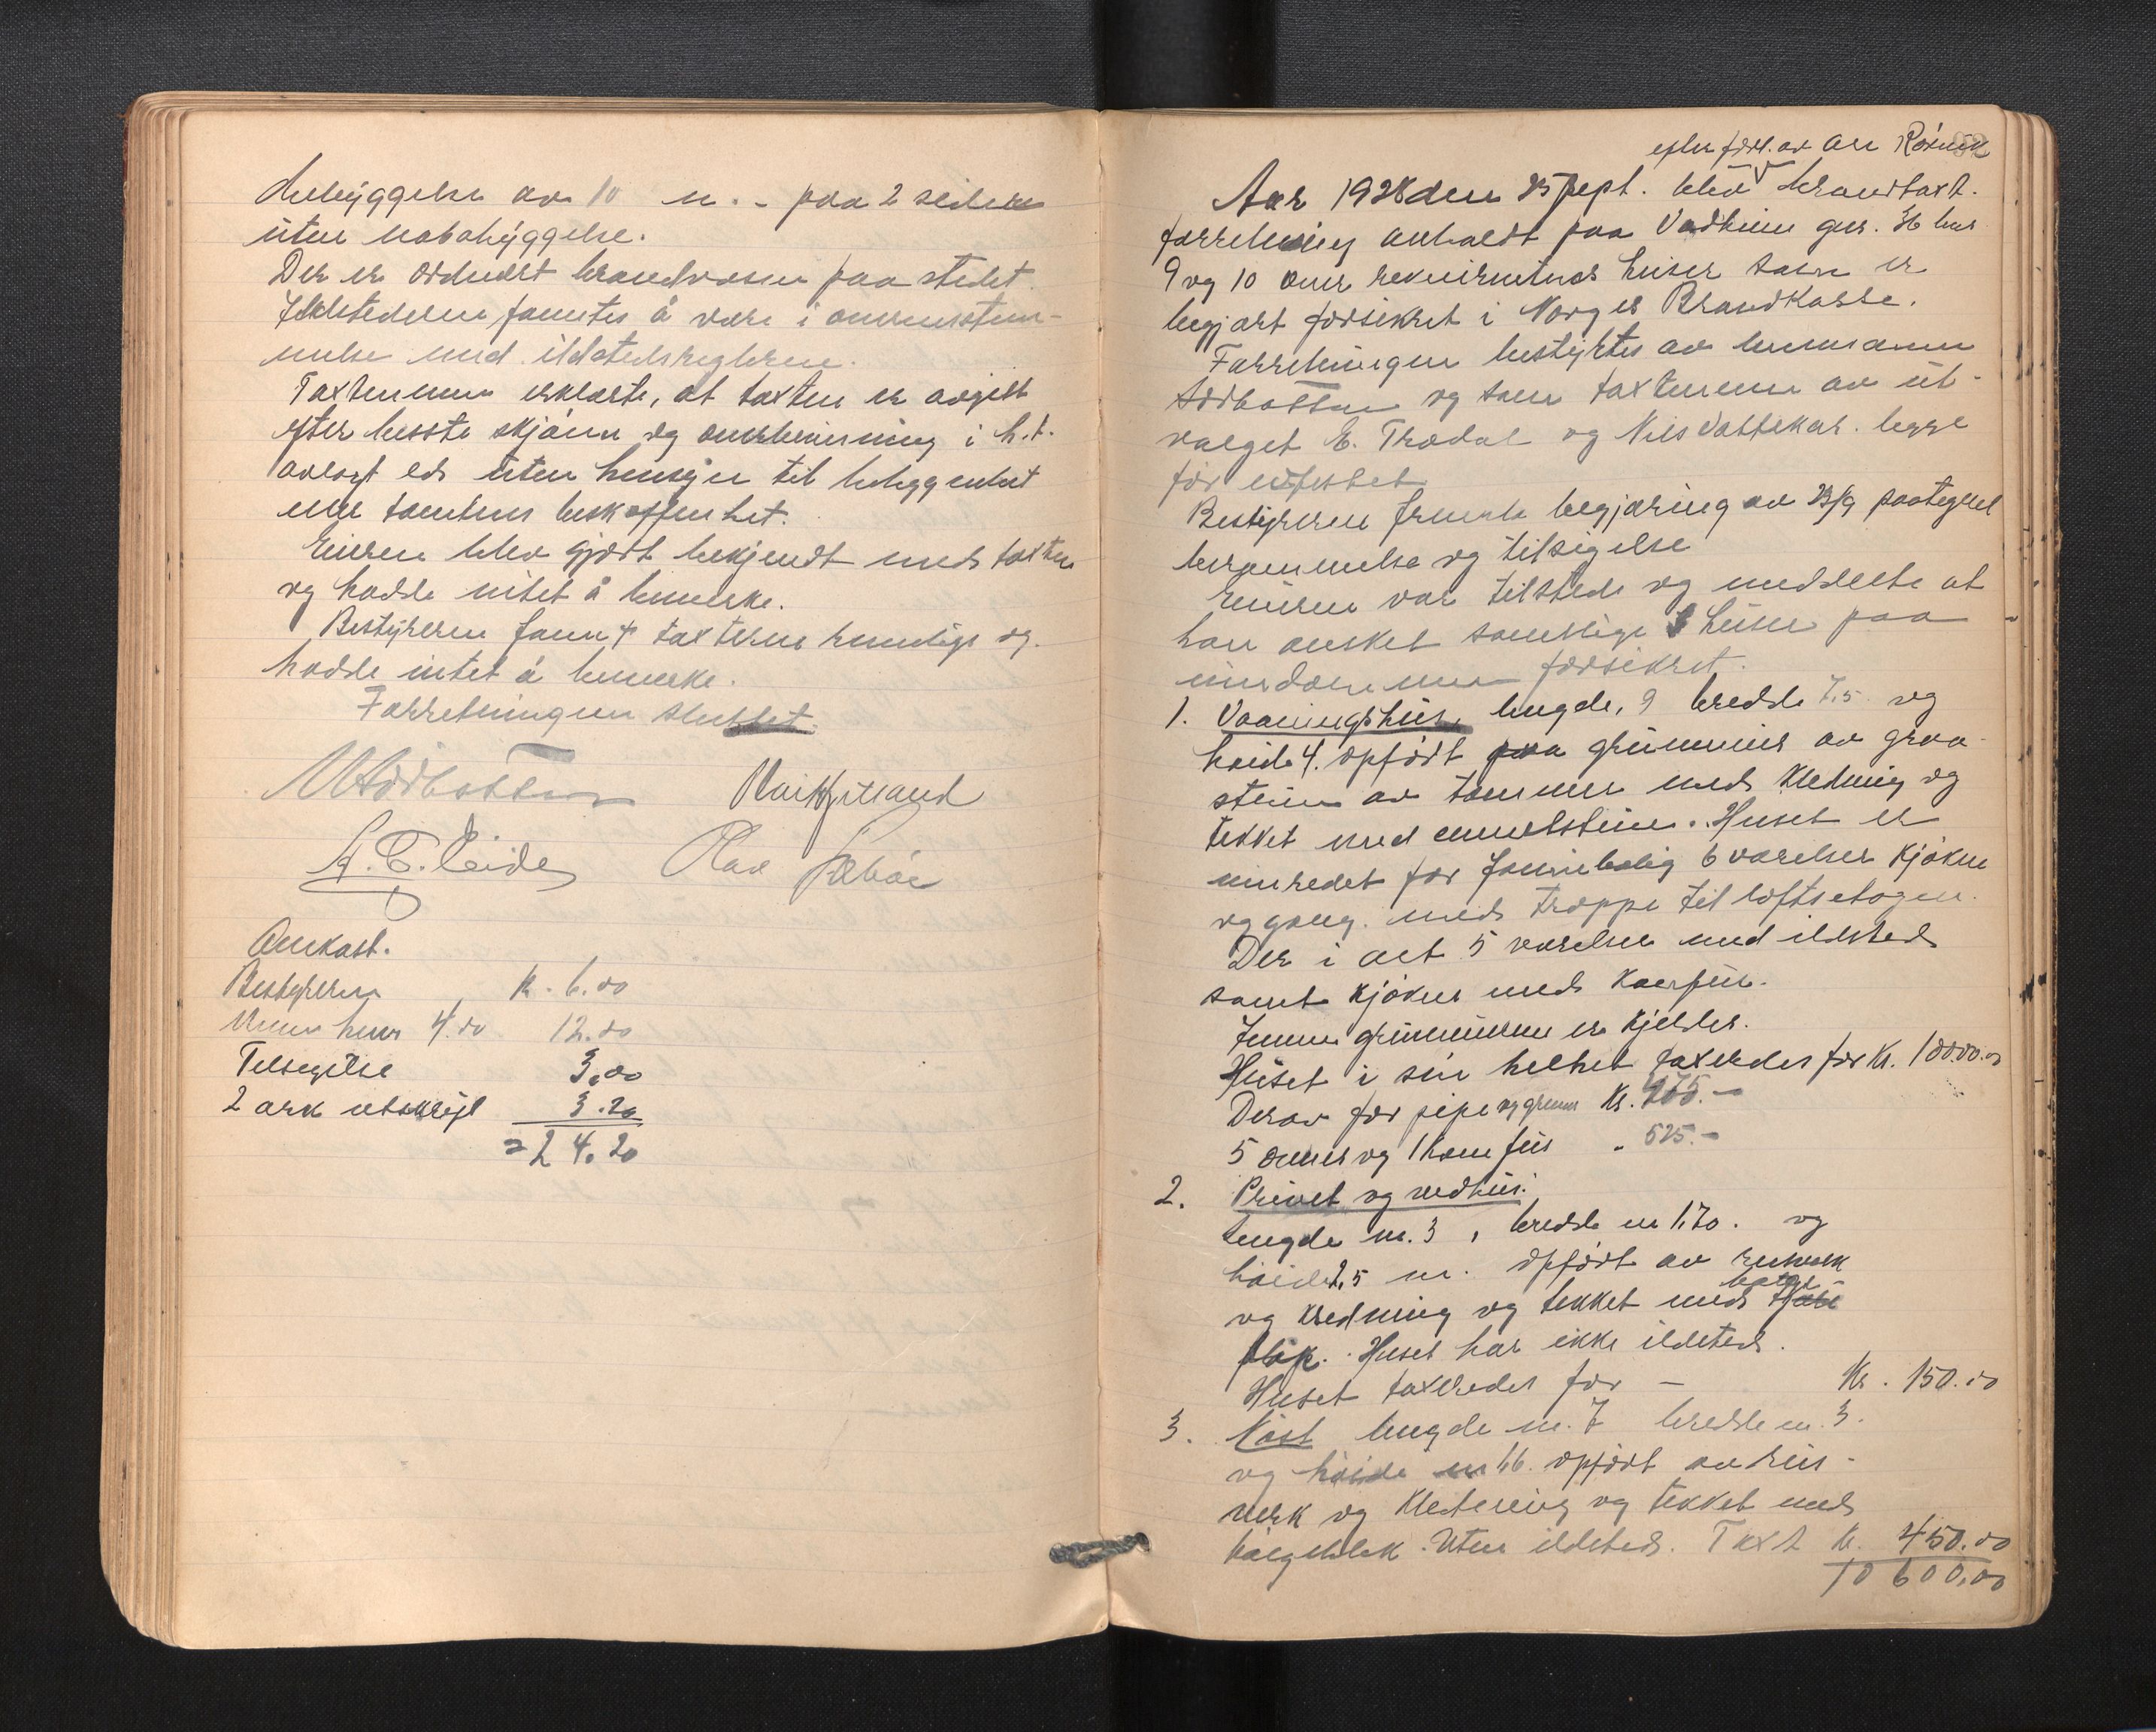 bebyggelse av 10 m. - paa 2 sider
uten nabobyggelse.
Der er ordnet brandvæsen paa stedet.
Ildstederne fantes å være i overensstem-
melse med ildstedsreglerne.
Taxtmennene erklærte, at taxten er avgitt
efter beste skjønn og overbevisning i h.t.
avlagt ed uten hensyn til beliggenhet
eller tomtens beskaffenhet.
Eieren blev gjort bekjendt med taxten
og hadde intet å bemerke.
Bestyreren fant taxterne rimelige og
hadde intet å bemerke.
Forretningen sluttet.
A. E. Eide Olav
Omkost.
Bestyreren K. 6.00
Menn hver 4.00 12.00
Tilsigelse 3.00
2 ark utskrift 3.20
= 24.20
efter forl. av
Aar 1928 den 25 sept. blev brandtaxt-
forretning avholdt paa Vadheim gnr. 36 bnr
9 og 10 over rekvirentens huser som er
begjært forsikret i Norges Brandkasse.
Forretningen bestyrtes av lensmann
Nordbotten og som taxtmenn av ut-
valget E. Trædal og Nils Vattekar. begge
før edfestet
Bestyreren fremla begjæring av 23/9 paategnet
berammelse og tilsigelse
Eieren var tilstede og meddelte at
han ønsket samtlige 3 huser paa
eiendommen forsikret.
1. Vaaningshus, lengde, 9 bredde 7,5 og
høide 4. opført paa grunnmur av graa-
stein av tømmer med kledning og
tekket med enneltstein. Huset er
innredet for familiebolig 6 værelser kjøken
og gang. med trappe til loftsetagen.
Der i alt 5 værelser med ildsted
samt kjøken med komfur.
Innen grunnmuren er kjelder.
Huset i sin helhet taxeredes for Kr. 10000.00
Derav for pipe og grunm Kr. 475.-
5 ovner og 1 komfur " 525.-
2. Privet og vedhus.
Lengde m. 3, bredde m 1.70. og
høide 2,5 m. opført av reisverk
og kledning og tekket med
Huset har ikke ildsted.
Huset taxeredes for - Kr. 150.00
3. Nøst lengde m. 7 bredde m. 3.
og høide m opført av reis-
verk og kledning og tekket med
bølgeblek. Uten ildsted. Taxt Kr. 450.00
10 600.00